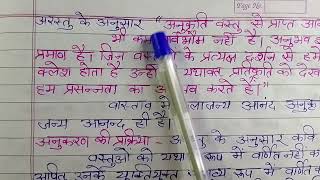 Page No.
अरस्तु के अनुसार " अनुकृति वस्तु से प्राप्त आ
भी कम सार्वभौम नहीं है। अनुभव इ
प्रमाण है। जिन वस् के प्रत्यक्ष दर्शन से हमे
क्लेश होता है उन्ही यथावत् प्रतिकृति को देख
हम प्रसन्नता का अ व करते हैं।"
वास्तव में जन्य आनंद अनुक
जन्य आनन्द ही है।
अनुकरण की प्रक्रिया - अ तु के अनुसार कवि
वस्तुओं को यथा रूप में वर्णित नही क
अपितु उनके युक्तियुक्त रूप में व